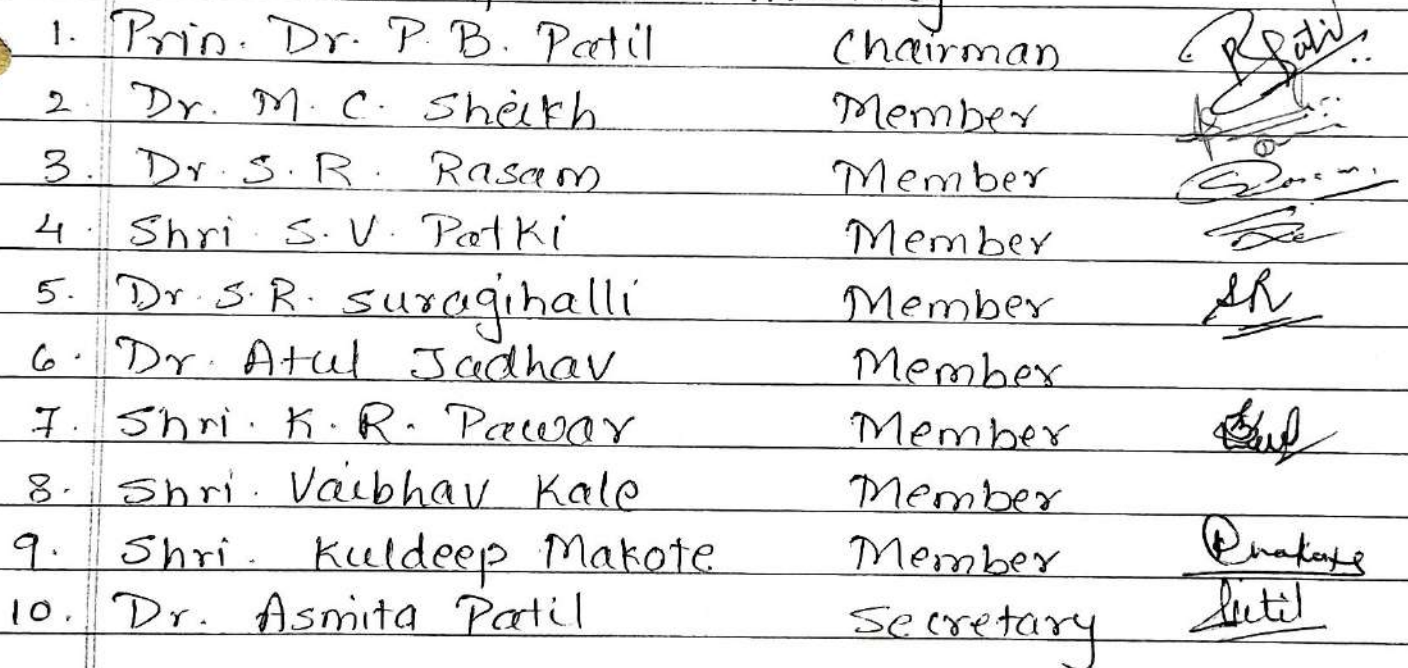 1. Prin. Dr. P. B. Patil Chairman
2. Dr. M. C. Sheikh Member
3. Dr. S. R. Rasam Member
4. Shri S. V. Patki Member
5. Dr. S. R. suragihalli Member SR
6. Dr. Atul Jadhav Member
7. Shri. K. R. Pawar Member
8. Shri. Vaibhav Kale Member
9. Shri. Kuldeep Makote Member
10. Dr. Asmita Patil Secretary